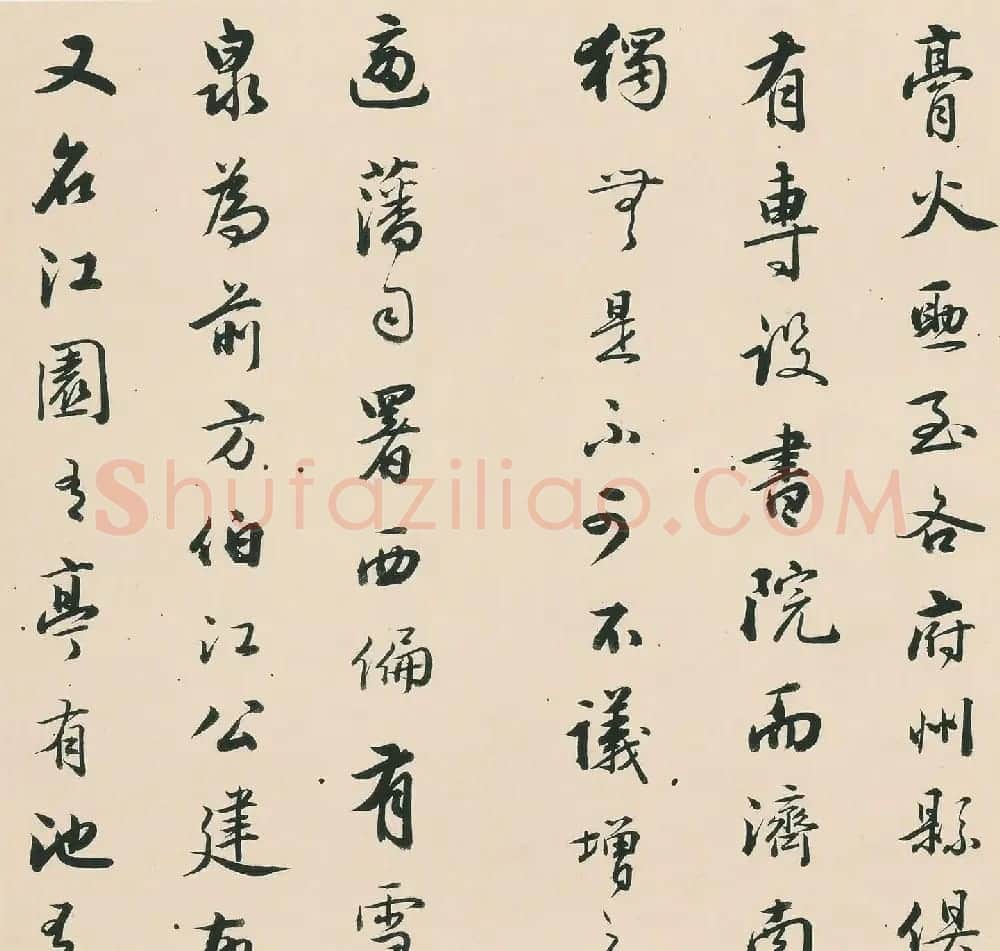 膏火至各府州縣俱
有專設書院而濟南
獨無是不可不議增之
適藩司署西偏有雪
泉為前方伯江公建
又名江園有亭有池有
Shufaziliao.COM